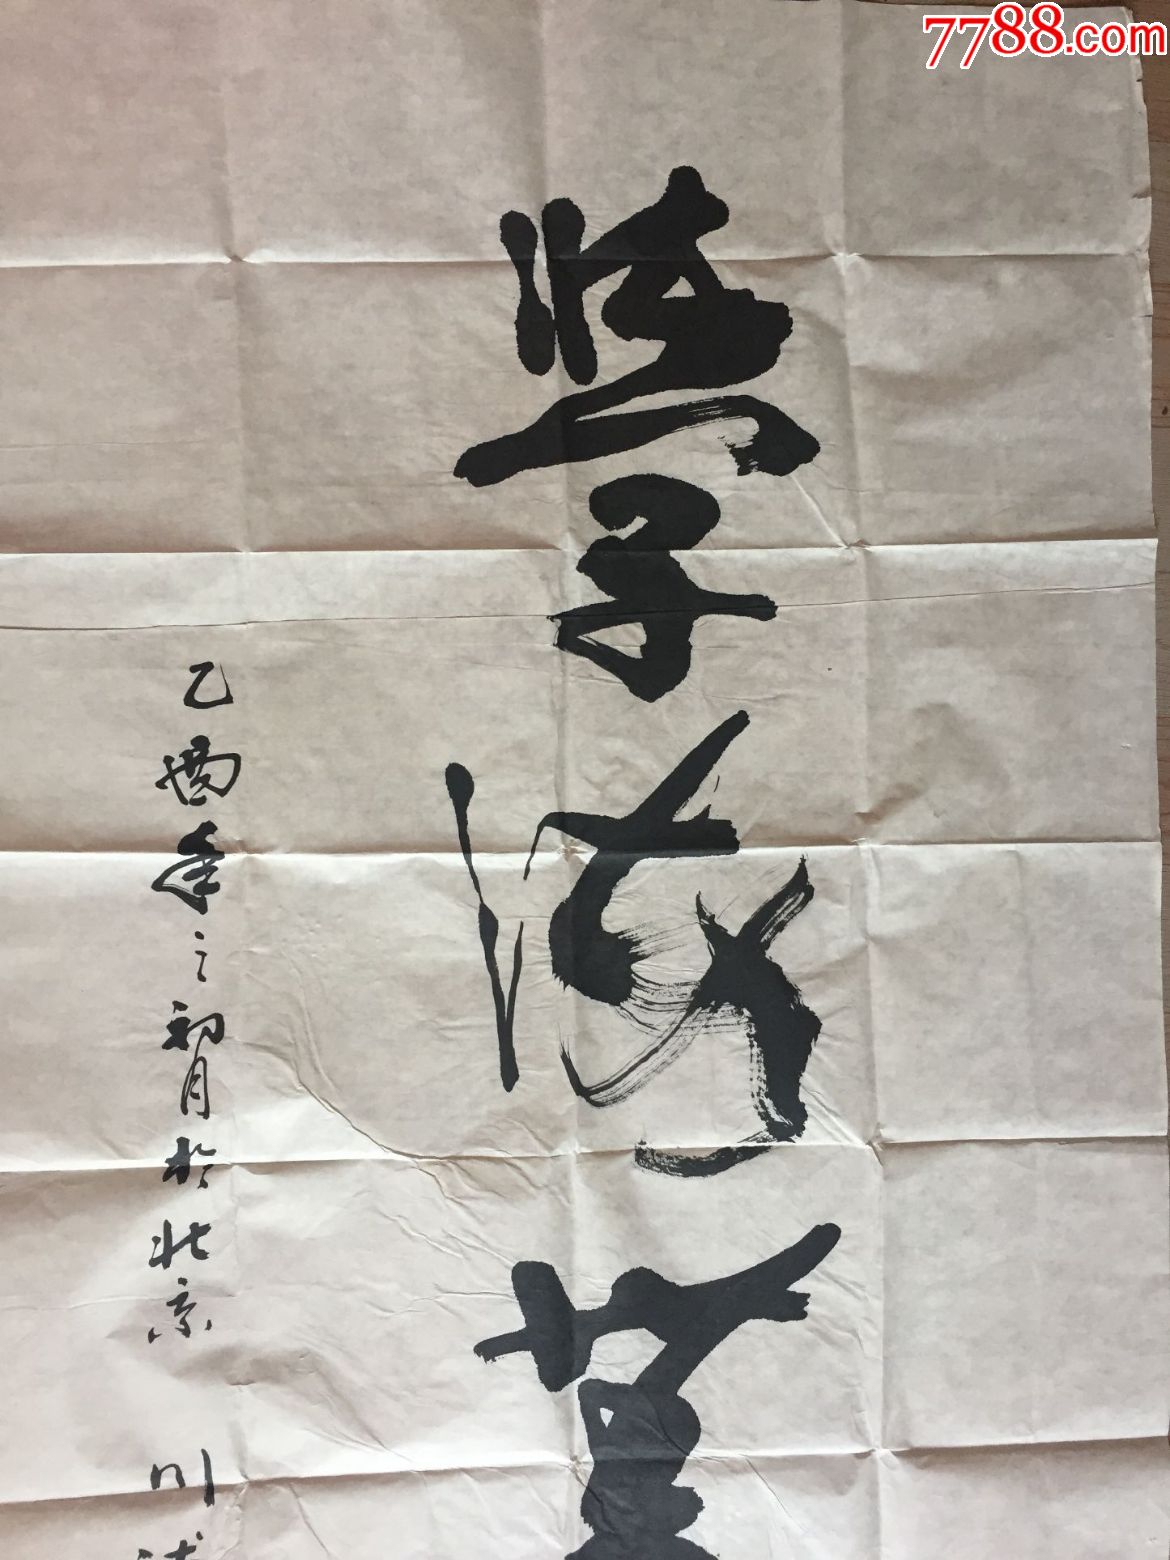 7788.com
學海無
乙酉年之初月於北京 川